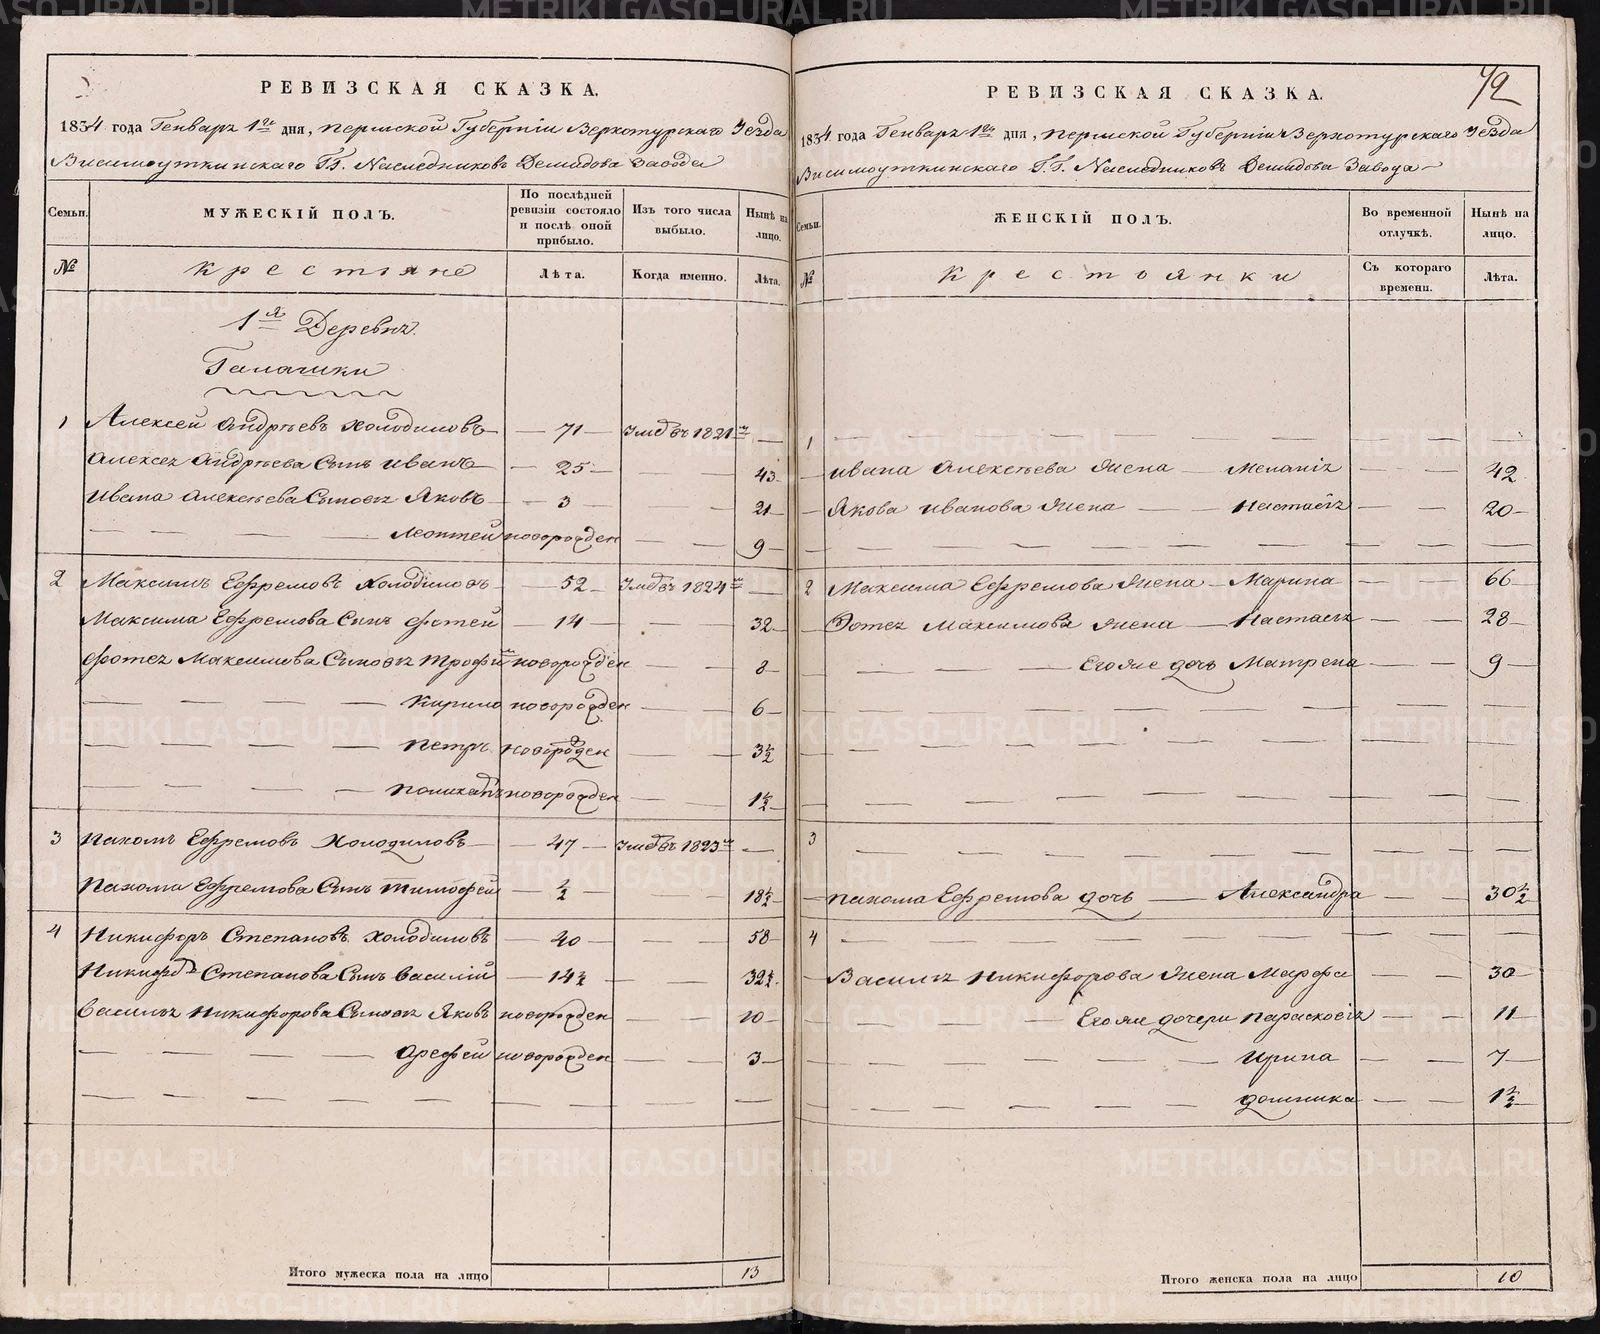 РЕВИЗСКАЯ СКАЗКА.
1834 года Генваря 1го дня, Пермской Губерніи Верхотурскаго Уезда
Висимоуткинскаго Гг. Наследниковъ Демидова Завода
Семьи. МУЖЕСКІЙ ПОЛЪ. По послѣдней ревизіи состояло и послѣ оной прибыло. Изъ того числа выбыло. Нынѣ на лицо.
№ Крестьяне Лѣта. Когда именно. Лѣта.
1я Деревня
Галашки
1 Алексей Андреевъ Холодиловъ — 71 — Умре въ 1821м —
Алексея Андреева Сынъ Иванъ — 25 — 43
Ивана Алексеева Сыновья Яковъ — 3 — — 21
— — — Леонтей новорожден — — 9
2 Максимъ Ефремовъ Холодиловъ — 52 — Умре въ 1824м —
Максима Ефремова Сынъ Фотей — 14 — — — 32
Фотея Максимова Сыновья Трофимъ новорожден — — 8
— — — — Кирило новорожден — — 6
— — — — Петръ новорожден — — 3½
— — — — Поликарпъ новорожден — — 1½
3 Пахомъ Ефремовъ Холодиловъ — 47 — Умре въ 1823м —
Пахома Ефремова Сынъ Тимофей — ½ — — — 18½
4 Никифоръ Степановъ Холодиловъ — 40 — — — 58
Никифора Степанова Сынъ Василій — 14½ — — 32½
Василья Никифорова Сыновья Яковъ новорожден — — 10
— — — — Арефей новорожден — — 3
Итого мужеска пола на лицо 13
72
РЕВИЗСКАЯ СКАЗКА.
1834 года Генваря 1го дня, Пермской Губерніи Верхотурскаго Уезда
Висимоуткинскаго Г.Г. Наследниковъ Демидова Завода
Семьи. ЖЕНСКІЙ ПОЛЪ. Во временной отлучкѣ. Нынѣ на лицо.
№ Крестьянки Съ котораго времени. Лѣта.
1 — — — —
Ивана Алексеева Жена — Меланія — — 42
Якова Иванова Жена — Настасія — — 20
2 Максима Ефремова Жена — Марина — — 66
Фотея Максимова Жена — Настасія — — 28
— — — Его же дочь Матрена — — 9
3 — — — —
Пахома Ефремова дочь — Александра — — 30½
4 — — — —
Василья Никифорова Жена Марфа — — 30
— — — Его же дочери Параскосія — — 11
— — — — Ирина — — 7
— — — — Домника — — 1½
Итого женска пола на лицо 10
METRIKI.GASO-URAL.RU